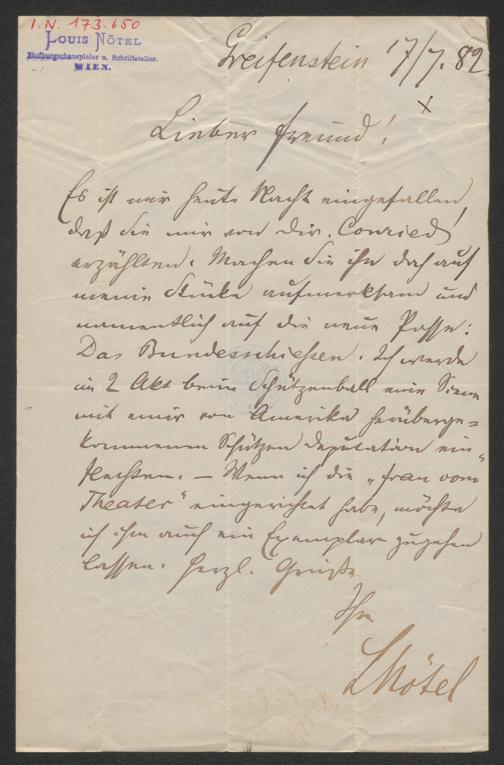 I.N. 173.650
LOUIS NÖTEL
Hofburgschauspieler u. Schriftsteller.
WIEN.
Greifenstein 17/7. 82
x
Lieber Freund!
Es ist mir heute Nacht eingefallen,
daß Sie mir von Dir. Conried
erzählten. Machen Sie ihn doch auf
meine Stücke aufmerksam und
namentlich auf die neue Posse:
Das Bundesschießen. Ich werde
im 2 Akt beim Schützenball eine Scene
mit einer von Amerika herüberge=
kommenen Schützendeputation ein=
flechten. – Wenn ich die „Frau vom
Theater" eingerichtet habe, möchte
ich ihm auch ein Exemplar zugehen
lassen. Herzl. Grüße
Ihr
LNötel